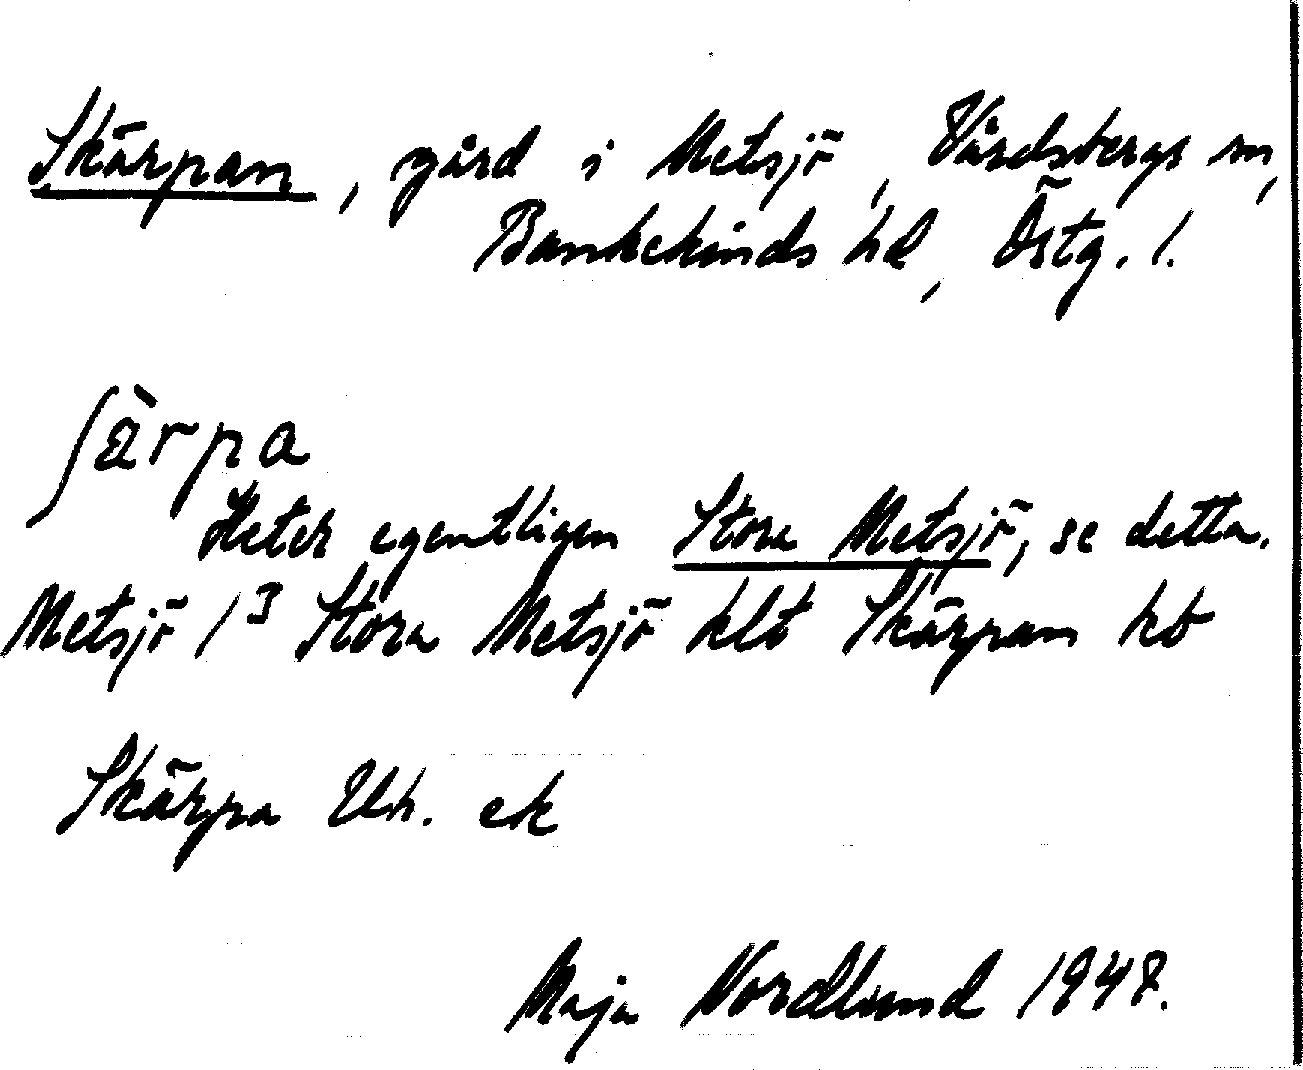 Skärpan, gård i Metsjö, Vårdsbergs sn,
Bankekinds hd, Östg. l.
ʃä̀rpa
Heter egentligen Stora Metsjö, se detta.
Metsjö 1³ Stora Metsjö klt Skärpan kb
Skärpa Uh. ek
Maja Nordlund 1947.